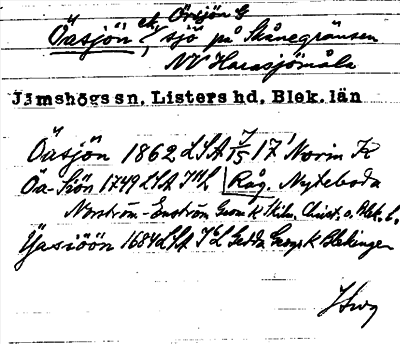 Örsjön G
Öasjön ek, sjö på Skånegränsen
NV Harasjömåla
Jämshögs sn, Listers hd, Blek. län
Öasjön 1862 LSA 7/15 17' Norin K
Öa-Siön 1749 LSA Råg. Nyteboda
Norström-Enström Geom K Kihn. Christ. o. Blek. l.
Yasiöön 1684 LSA Gedda Geogr K Blekingen